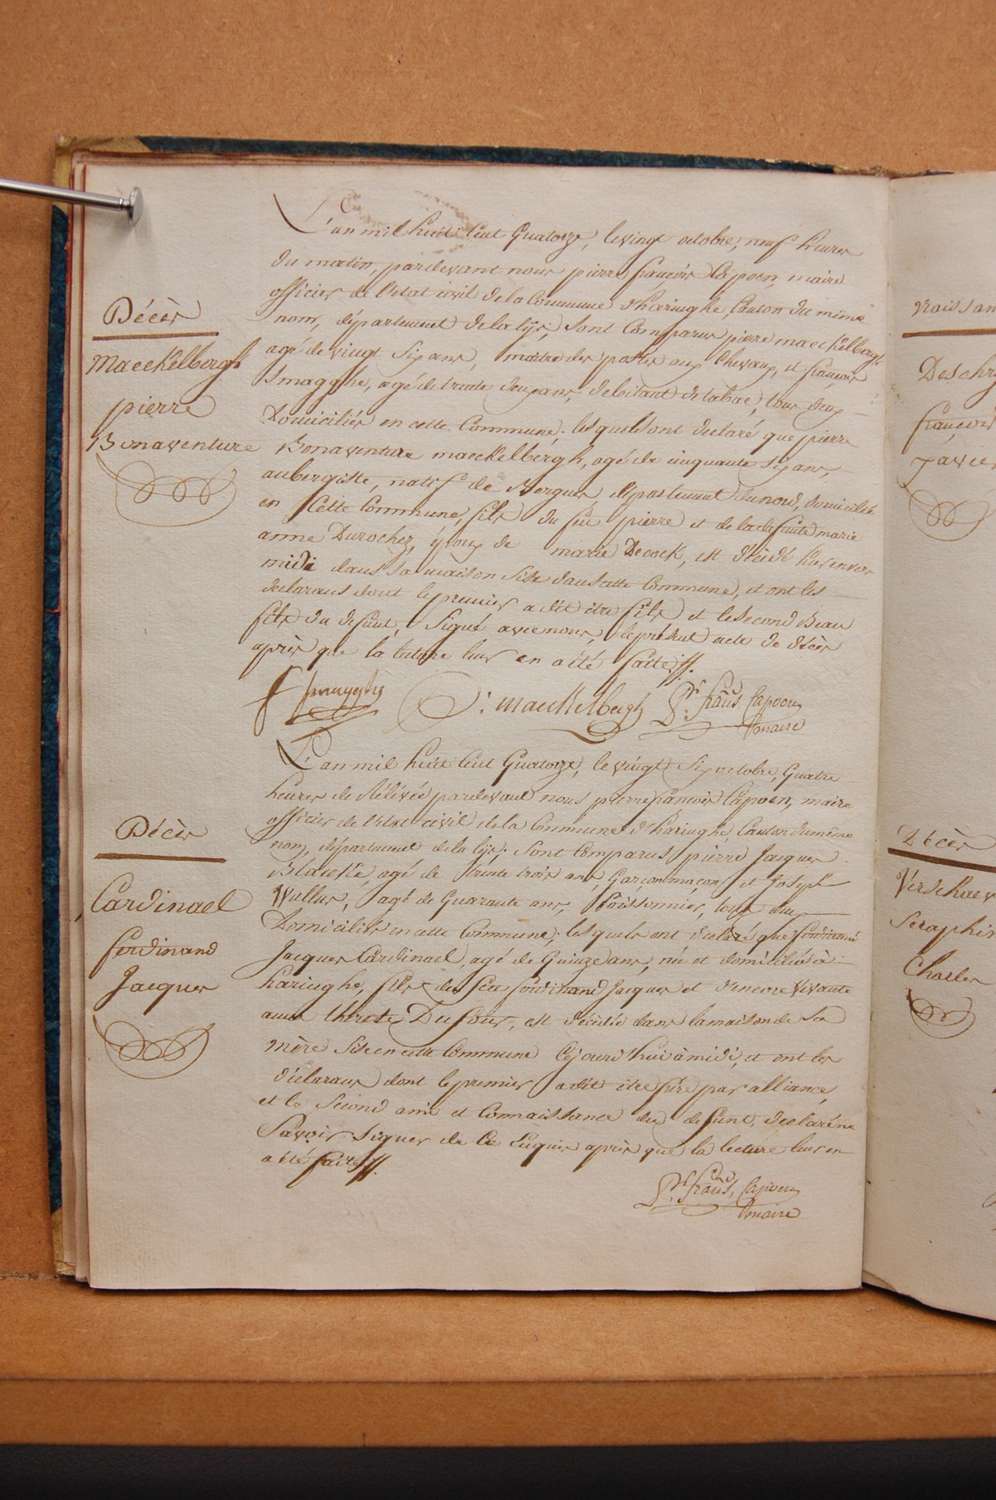 Décès
Maeckelbergh
pierre
Bonaventure
L'an mil huit cent Quatorze, le vingt octobre, neuf heures
du matin, pardevant nous pierre françois Capoen, maire
officier de l'état civil de la Commune d'haringhe Canton du même
nom, département de la lijs, sont Comparus pierre maeckelbergh
agé de vingt six ans, maitre des postes aux chevaux, et françois
Smagghe, agé de trente deux ans, debitant de tabac, tous deux
Domiciliés en cette Commune, les quels ont declaré que pierre
Bonaventure maeckelbergh, agé de cinquante six ans,
aubergiste, natif de Bergues département du nord, domicilié
en Cette Commune, fils du feu pierre et de la defunte marie
anne Durochez, epoux de marie Decock, est décédé hier envers
midi dans sa maison sise dans cette Commune, et ont les
declarans dont le premier a dit être fils, et le second Beau
fils du defunt, Signé avec nous, le présent acte de décès
après que la lecture leur en a été faite //.
f Smagghe
P: Maeckelbergh
Pre. frans. Capoen
maire
Décès
Cardinael
ferdinand
Jacques
L'an mil huit Cent Quatorze, le vingt six octobre, Quatre
heures de Rélévée pardevant nous pierre françois Capoen, maire
officier de l'état civil de la Commune d'haringhe Canton du même
nom, département de la lijs, sont Comparus, pierre Jacques
agé de trente trois ans, Garçon maçon, et Joseph
Wullus, agé de Quarante ans, Poissonnier, tous deux
Domiciliés en cette Commune, les quels ont declaré que ferdinand
Jacques Cardinael, agé de Quinze ans, né et domicilié à
haringhe, fils de feu ferdinand Jacques et d'encore vivante
anne therese Dufour, est décédé dans la maison de sa
mère sise en cette Commune Cejourd'hui à midi, et ont les
déclarans dont le premier a dit être frère par alliance,
et le second ami et Connaissance du defunt, declaré ne
Savoir signer de Ce enquis après que la lecture leur en
a été faite //.
Pre. frans. Capoen
maire
naissan
Deschr
françois
xavier
Décès
Verschaev
Seraphin
Charles